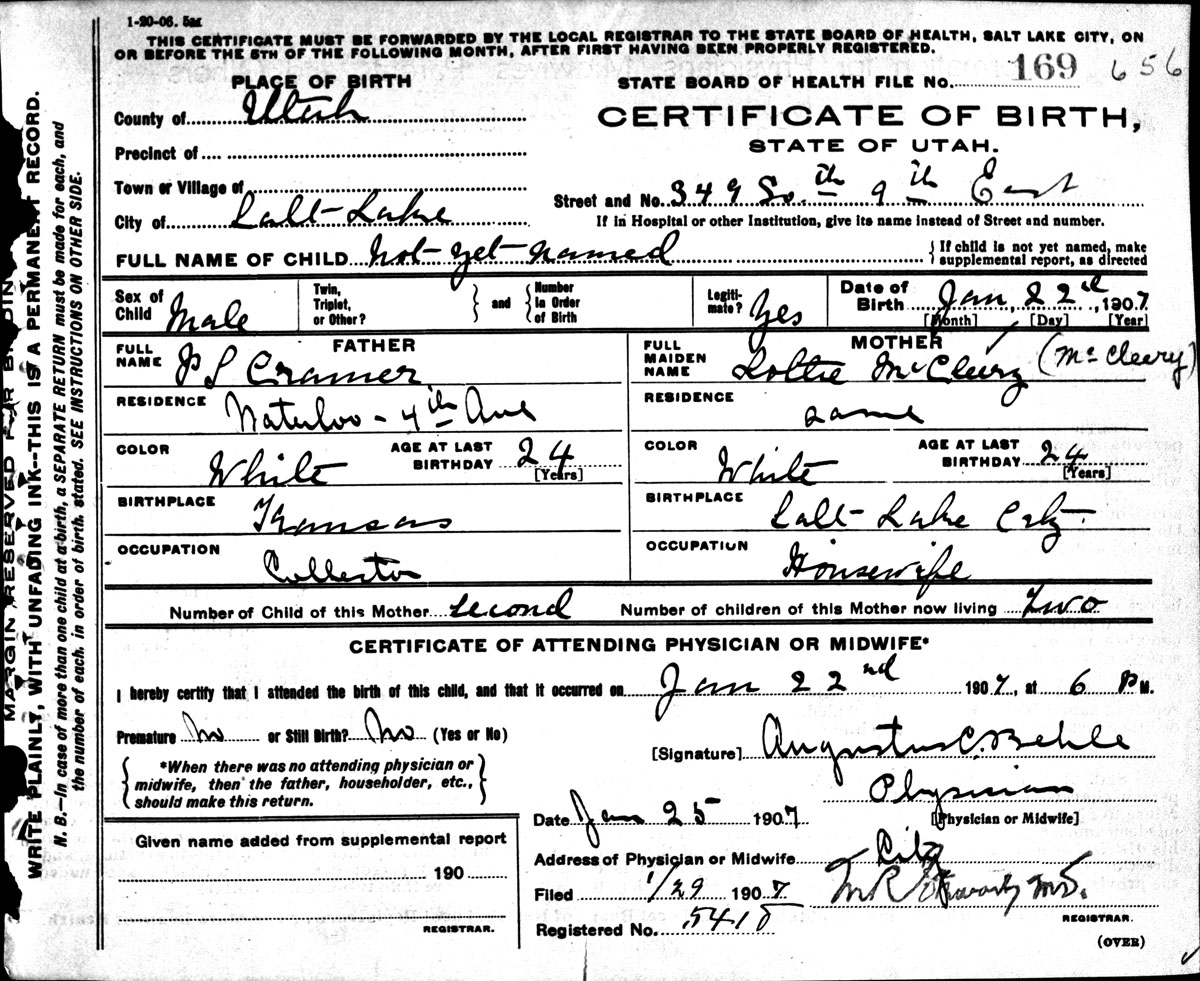 1-20-06. 5M
THIS CERTIFICATE MUST BE FORWARDED BY THE LOCAL REGISTRAR TO THE STATE BOARD OF HEALTH, SALT LAKE CITY, ON
OR BEFORE THE 5TH OF THE FOLLOWING MONTH, AFTER FIRST HAVING BEEN PROPERLY REGISTERED.
PLACE OF BIRTH
STATE BOARD OF HEALTH FILE No. 169 656
County of Utah
CERTIFICATE OF BIRTH,
STATE OF UTAH.
Precinct of
Town or Village of
Street and No. 349 So. th 9th East
City of Salt Lake
If in Hospital or other Institution, give its name instead of Street and number.
FULL NAME OF CHILD Not yet named
If child is not yet named, make
supplemental report, as directed
Sex of Child Male
Twin, Triplet, or Other? and Number in Order of Birth
Legiti-mate? Yes
Date of Birth Jan 22nd, 1907
[Month] [Day] [Year]
FATHER
FULL NAME P S Cramer
RESIDENCE Waterloo - 4th Ave
COLOR White AGE AT LAST BIRTHDAY 24 [Years]
BIRTHPLACE Kansas
OCCUPATION Collector
MOTHER
FULL MAIDEN NAME Lottie McCleery (McCleery)
RESIDENCE same
COLOR White AGE AT LAST BIRTHDAY 24 [Years]
BIRTHPLACE Salt Lake City
OCCUPATION Housewife
Number of Child of this Mother second Number of children of this Mother now living Two
CERTIFICATE OF ATTENDING PHYSICIAN OR MIDWIFE*
I hereby certify that I attended the birth of this child, and that it occurred on Jan 22nd 1907, at 6 P M.
Premature No or Still Birth? No (Yes or No)
[Signature] Augustus C. Behle
*When there was no attending physician or
midwife, then the father, householder, etc.,
should make this return.
Physician
[Physician or Midwife]
Date Jan 25 1907
Given name added from supplemental report
190
REGISTRAR.
Address of Physician or Midwife City
Filed 1/29 1907 M.D.
REGISTRAR.
Registered No. 5418
(OVER)
MARGIN RESERVED FOR BINDIN
WRITE PLAINLY, WITH UNFADING INK--THIS IS A PERMANENT RECORD.
N. B.—In case of more than one child at a birth, a SEPARATE RETURN must be made for each, and
the number of each, in order of birth, stated. SEE INSTRUCTIONS ON OTHER SIDE.